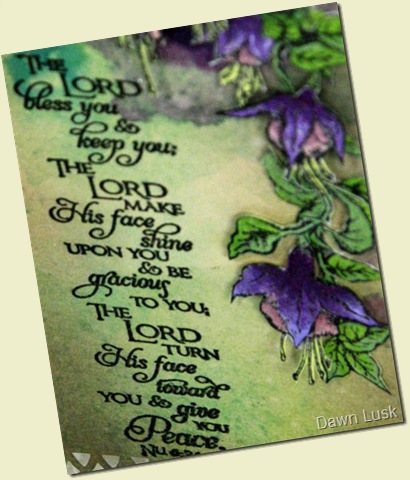 THE
LORD
bless you
&
keep you;
THE
LORD
MAKE
His face
shine
UPON YOU
& BE
gracious
TO YOU;
THE
LORD
TURN
His face
toward
YOU & give
YOU
Peace.
Dawn Lusk